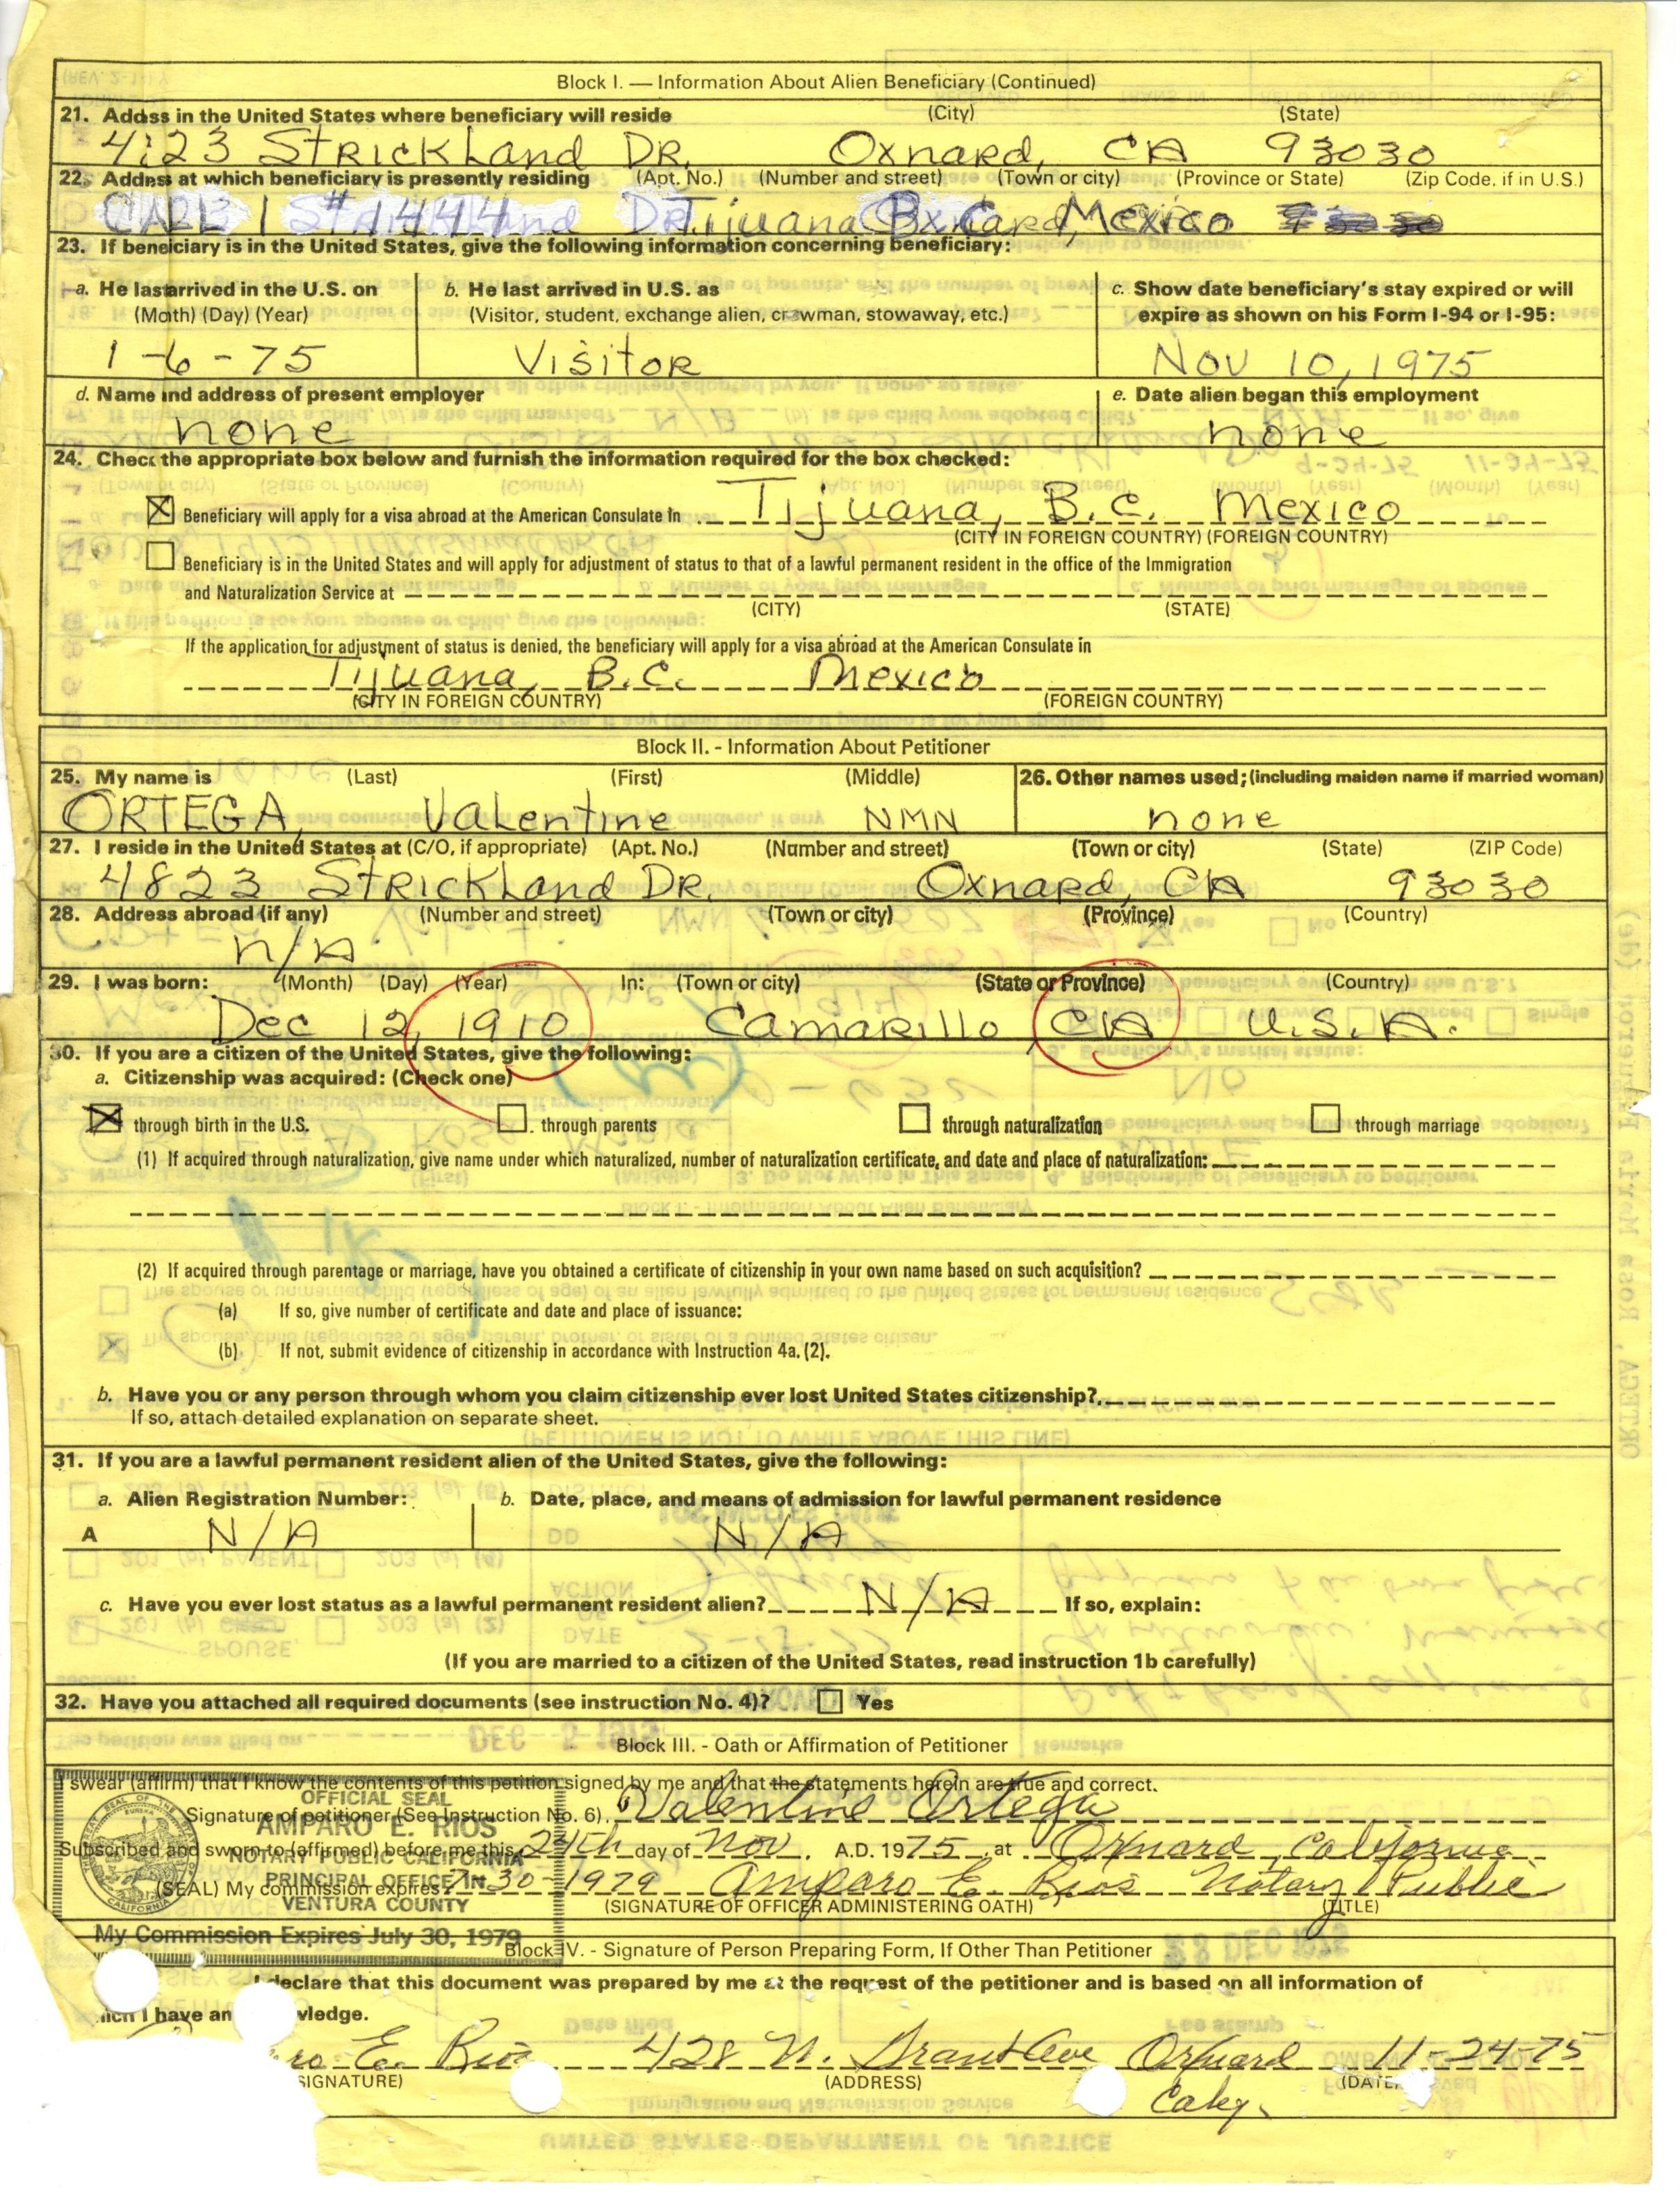 Block I. — Information About Alien Beneficiary (Continued)
21. Addss in the United States where beneficiary will reside (City) (State)
4:23 Strickland DR. Oxnard, CA 93030
22. Addess at which beneficiary is presently residing (Apt. No.) (Number and street) (Town or city) (Province or State) (Zip Code, if in U.S.)
CALLE 1 #1444 Tijuana B.C. Mexico
23. If beneiciary is in the United States, give the following information concerning beneficiary:
a. He last arrived in the U.S. on b. He last arrived in U.S. as c. Show date beneficiary's stay expired or will
(Moth) (Day) (Year) (Visitor, student, exchange alien, crewman, stowaway, etc.) expire as shown on his Form I-94 or I-95:
1-6-75 Visitor Nov 10, 1975
d. Name and address of present employer e. Date alien began this employment
none none
24. Check the appropriate box below and furnish the information required for the box checked:
Beneficiary will apply for a visa abroad at the American Consulate In Tijuana, B.C. Mexico
(CITY IN FOREIGN COUNTRY) (FOREIGN COUNTRY)
Beneficiary is in the United States and will apply for adjustment of status to that of a lawful permanent resident in the office of the Immigration
and Naturalization Service at
(CITY) (STATE)
If the application for adjustment of status is denied, the beneficiary will apply for a visa abroad at the American Consulate in
Tijuana, B.C. Mexico
(CITY IN FOREIGN COUNTRY) (FOREIGN COUNTRY)
Block II. - Information About Petitioner
25. My name is (Last) (First) (Middle) 26. Other names used; (including maiden name if married woman)
ORTEGA, Valentine NMN none
27. I reside in the United States at (C/O, if appropriate) (Apt. No.) (Number and street) (Town or city) (State) (ZIP Code)
4823 Strickland DR. Oxnard, CA 93030
28. Address abroad (if any) (Number and street) (Town or city) (Province) (Country)
n/A
29. I was born: (Month) (Day) (Year) In: (Town or city) (State or Province) (Country)
Dec 12, 1910 Camarillo, CA U.S.A.
30. If you are a citizen of the United States, give the following:
a. Citizenship was acquired: (Check one)
through birth in the U.S. through parents through naturalization through marriage
(1) If acquired through naturalization, give name under which naturalized, number of naturalization certificate, and date and place of naturalization:
(2) If acquired through parentage or marriage, have you obtained a certificate of citizenship in your own name based on such acquisition?
(a) If so, give number of certificate and date and place of issuance:
(b) If not, submit evidence of citizenship in accordance with Instruction 4a. (2).
b. Have you or any person through whom you claim citizenship ever lost United States citizenship?
If so, attach detailed explanation on separate sheet.
31. If you are a lawful permanent resident alien of the United States, give the following:
a. Alien Registration Number: b. Date, place, and means of admission for lawful permanent residence
A N/A N/A
c. Have you ever lost status as a lawful permanent resident alien? N/A If so, explain:
(If you are married to a citizen of the United States, read instruction 1b carefully)
32. Have you attached all required documents (see instruction No. 4)? Yes
Block III. - Oath or Affirmation of Petitioner
I swear (affirm) that I know the contents of this petition signed by me and that the statements herein are true and correct.
OFFICIAL SEAL
Signature of petitioner (See Instruction No. 6) Valentine Ortega
AMPARO E. RIOS
Subscribed and sworn to (affirmed) before me this 24th day of Nov. A.D. 1975 at Oxnard, California
NOTARY PUBLIC CALIFORNIA
PRINCIPAL OFFICE IN
(SEAL) My commission expires 7-30-1979 Amparo E. Rios Notary Public
VENTURA COUNTY
(SIGNATURE OF OFFICER ADMINISTERING OATH) (TITLE)
My Commission Expires July 30, 1979
Block IV. - Signature of Person Preparing Form, If Other Than Petitioner
I declare that this document was prepared by me at the request of the petitioner and is based on all information of
hich I have an vledge.
ro E. Rios 428 N. Grant Ave Oxnard 11-24-75
SIGNATURE) (ADDRESS) (DATE
Calif.